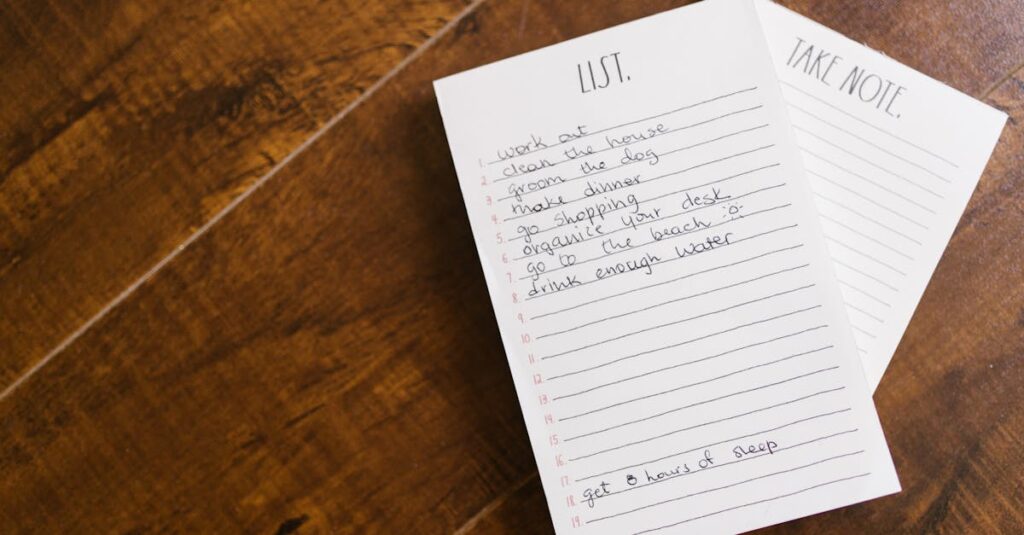 LIST.
TAKE NOTE.
1. work out
2. clean the house
3. groom the dog
4. make dinner
5. go shopping
6. organize your desk
7. go to the beach
8. drink enough water
9.
10.
11.
12.
13.
14.
15.
16.
17.
18. get 8 hours of sleep
19.